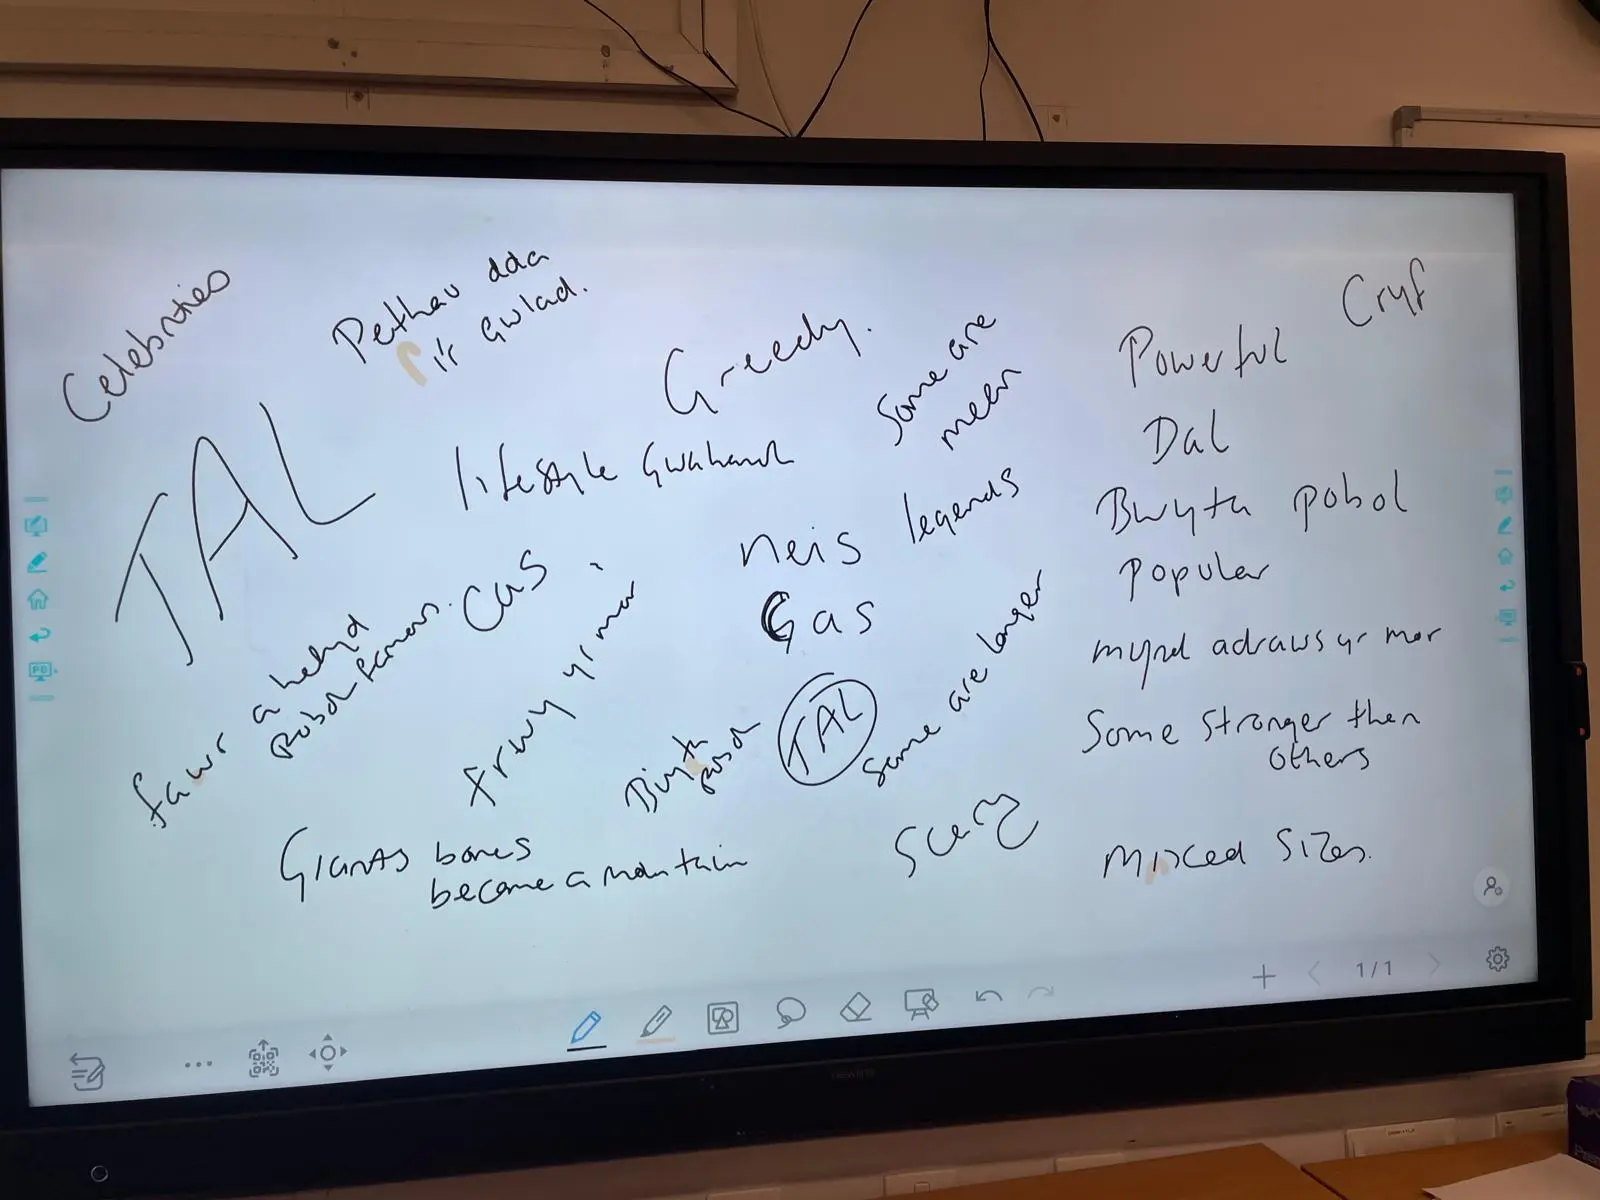 Celebrities
Pethau dda
i'r Gwlad.
Greedy.
Some are
mean
Cryf
Powerful
TAL
lifestyle Gwahanol
Dal
Bwyta pobol
legends
neis
Cas
popular
Cas
Gas
fawr a hefyd
pobol famous.
Ffrwy yr mor
Bwyta
pobol
TAL
Some are longer
mynd adraws yr mor
Some stronger then
others
Scary
Giants bones
became a mountain
mixced sizes.
1/1